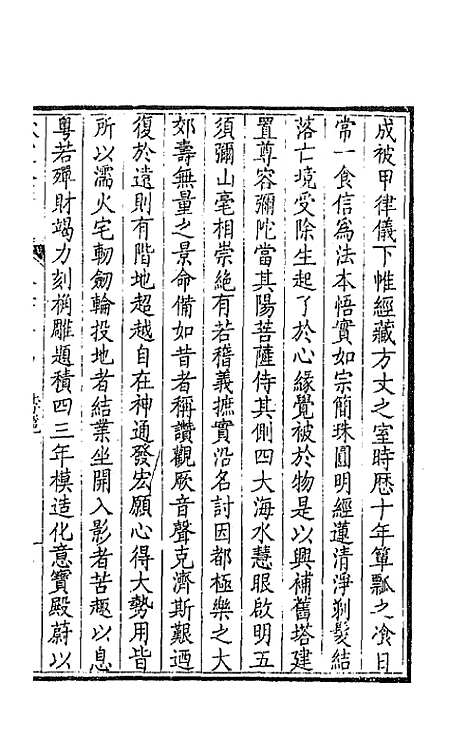 成被甲律儀下帷經藏方丈之室時歷十年簞瓢之飡日
常一食信爲法本悟實如宗簡珠圓明經蓮清淨剃髮結
落亡境受除生起了於心緣覺被於物是以興補舊塔建
置尊容彌陀當其陽菩薩侍其側四大海水慧眼啟明五
須彌山毫相崇絕有若稽義摭實沿名討因都極樂之大
郊壽無量之景命備如昔者稱讚觀厥音聲克濟斯艱迺
復於遠則有階地超越自在神通發宏願心得大勢用皆
所以濡火宅轫劒輪投地者結業坐開入影者苦趣以息
粤若殫財竭力刻桷雕題積四三年模造化意寶殿蔚以